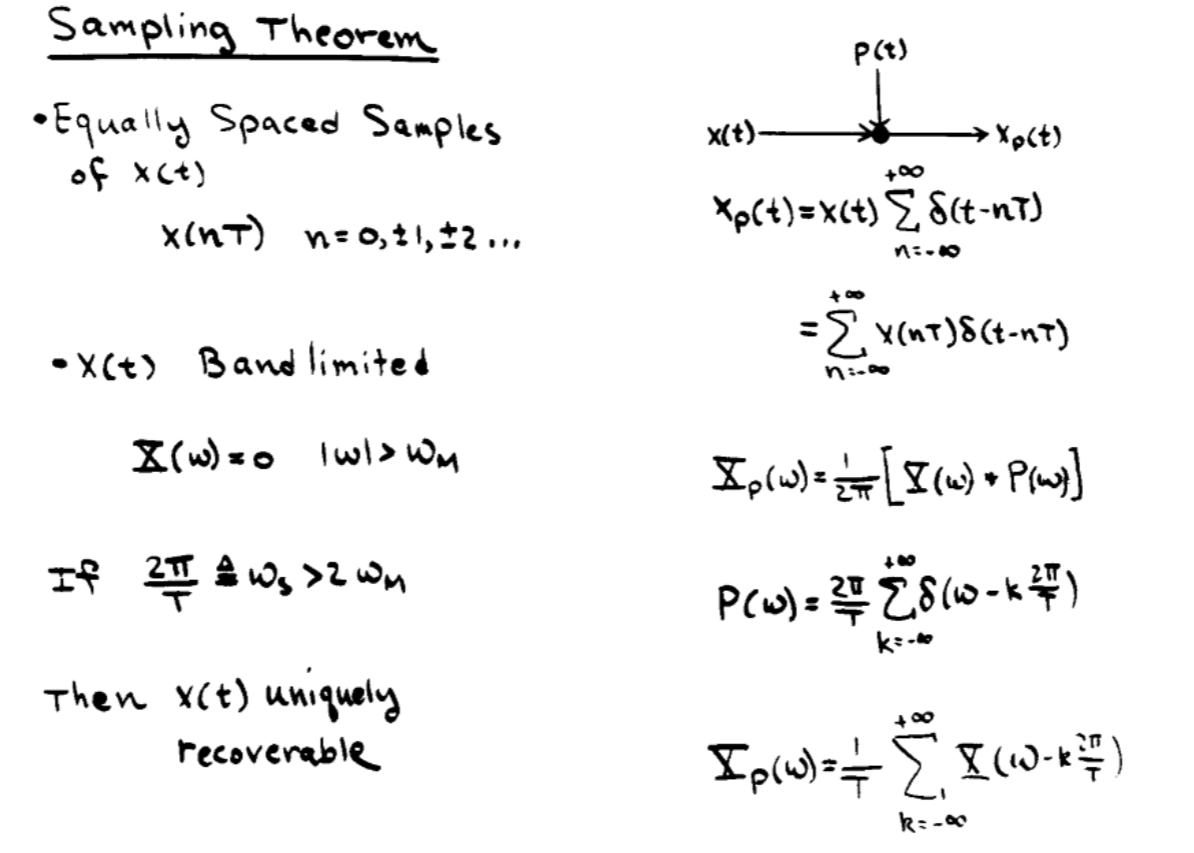 Sampling Theorem
• Equally Spaced Samples
of x(t)
x(nT) n = 0, ±1, ±2 ...
• X(t) Band limited
X(ω) = 0 |ω| > ω_M
If 2π/T ≜ ω_s > 2 ω_M
Then x(t) uniquely
recoverable
p(t)
x(t) → x_p(t)
x_p(t) = x(t) ∑_{n=-∞}^{+∞} δ(t-nT)
= ∑_{n=-∞}^{+∞} x(nT) δ(t-nT)
X_p(ω) = 1/2π [X(ω) * P(ω)]
P(ω) = 2π/T ∑_{k=-∞}^{+∞} δ(ω - k 2π/T)
X_p(ω) = 1/T ∑_{k=-∞}^{+∞} X(ω - k 2π/T)